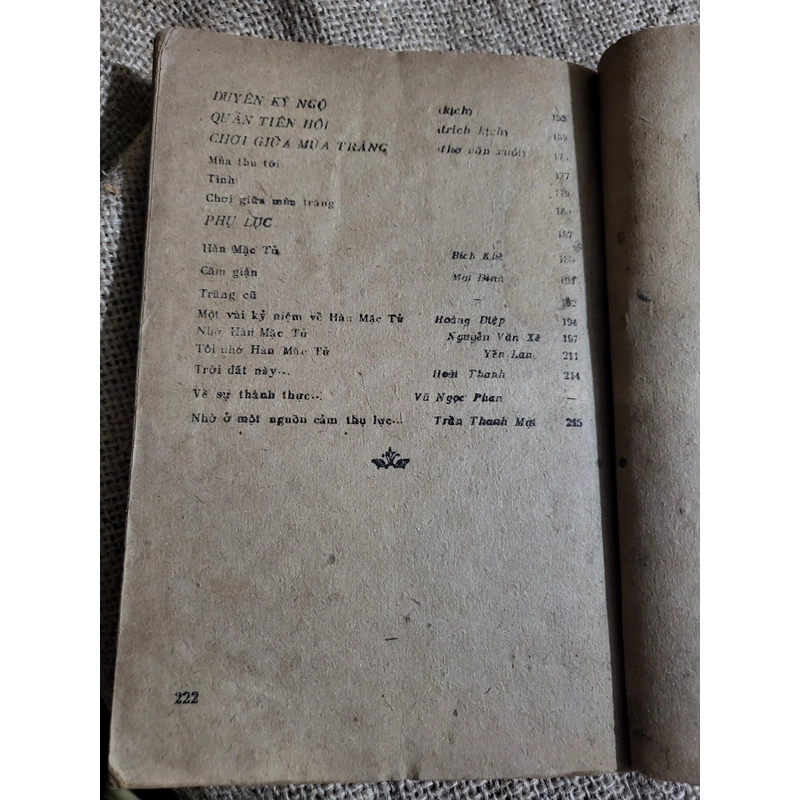 DUYÊN KỲ NGỘ (kịch) 153
QUẦN TIÊN HỘI (trích kịch)
CHƠI GIỮA MÙA TRĂNG (thơ văn xuôi)
Mùa thu tới 177
Tình 179
Chơi giữa mùa trăng
PHỤ LỤC 187
Hàn Mặc Tử Bích Khê
Cầm giận Mai Đình 191
Trăng cũ – 192
Một vài kỷ niệm về Hàn Mặc Tử Hoàng Diệp 194
Nhớ Hàn Mặc Tử Nguyễn Văn Xê 197
Tôi nhớ Hàn Mặc Tử Yến Lan 211
Trời đất này... Hoài Thanh 214
Về sự thành thực... Vũ Ngọc Phan –
Nhờ ở một nguồn cảm thụ lực... Trần Thanh Mại 215
222